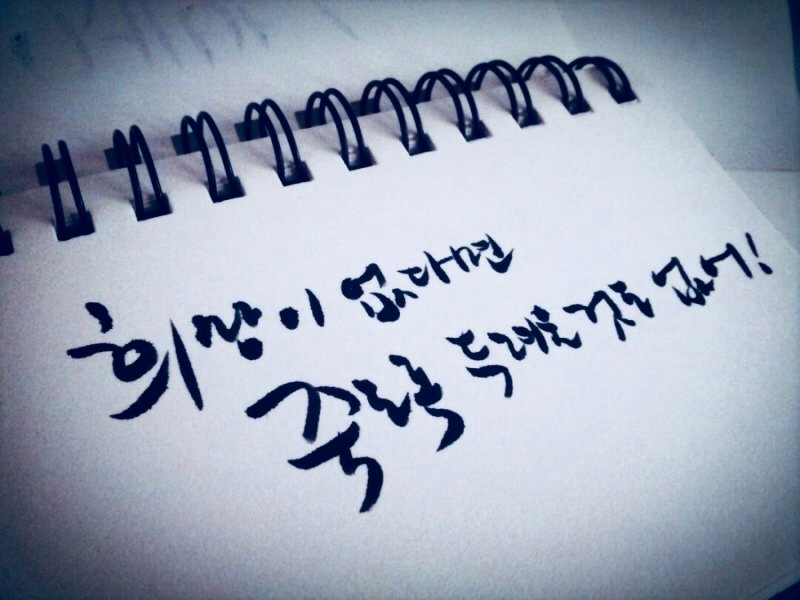 희망이 없다면
죽도록 두려운것도 없어!